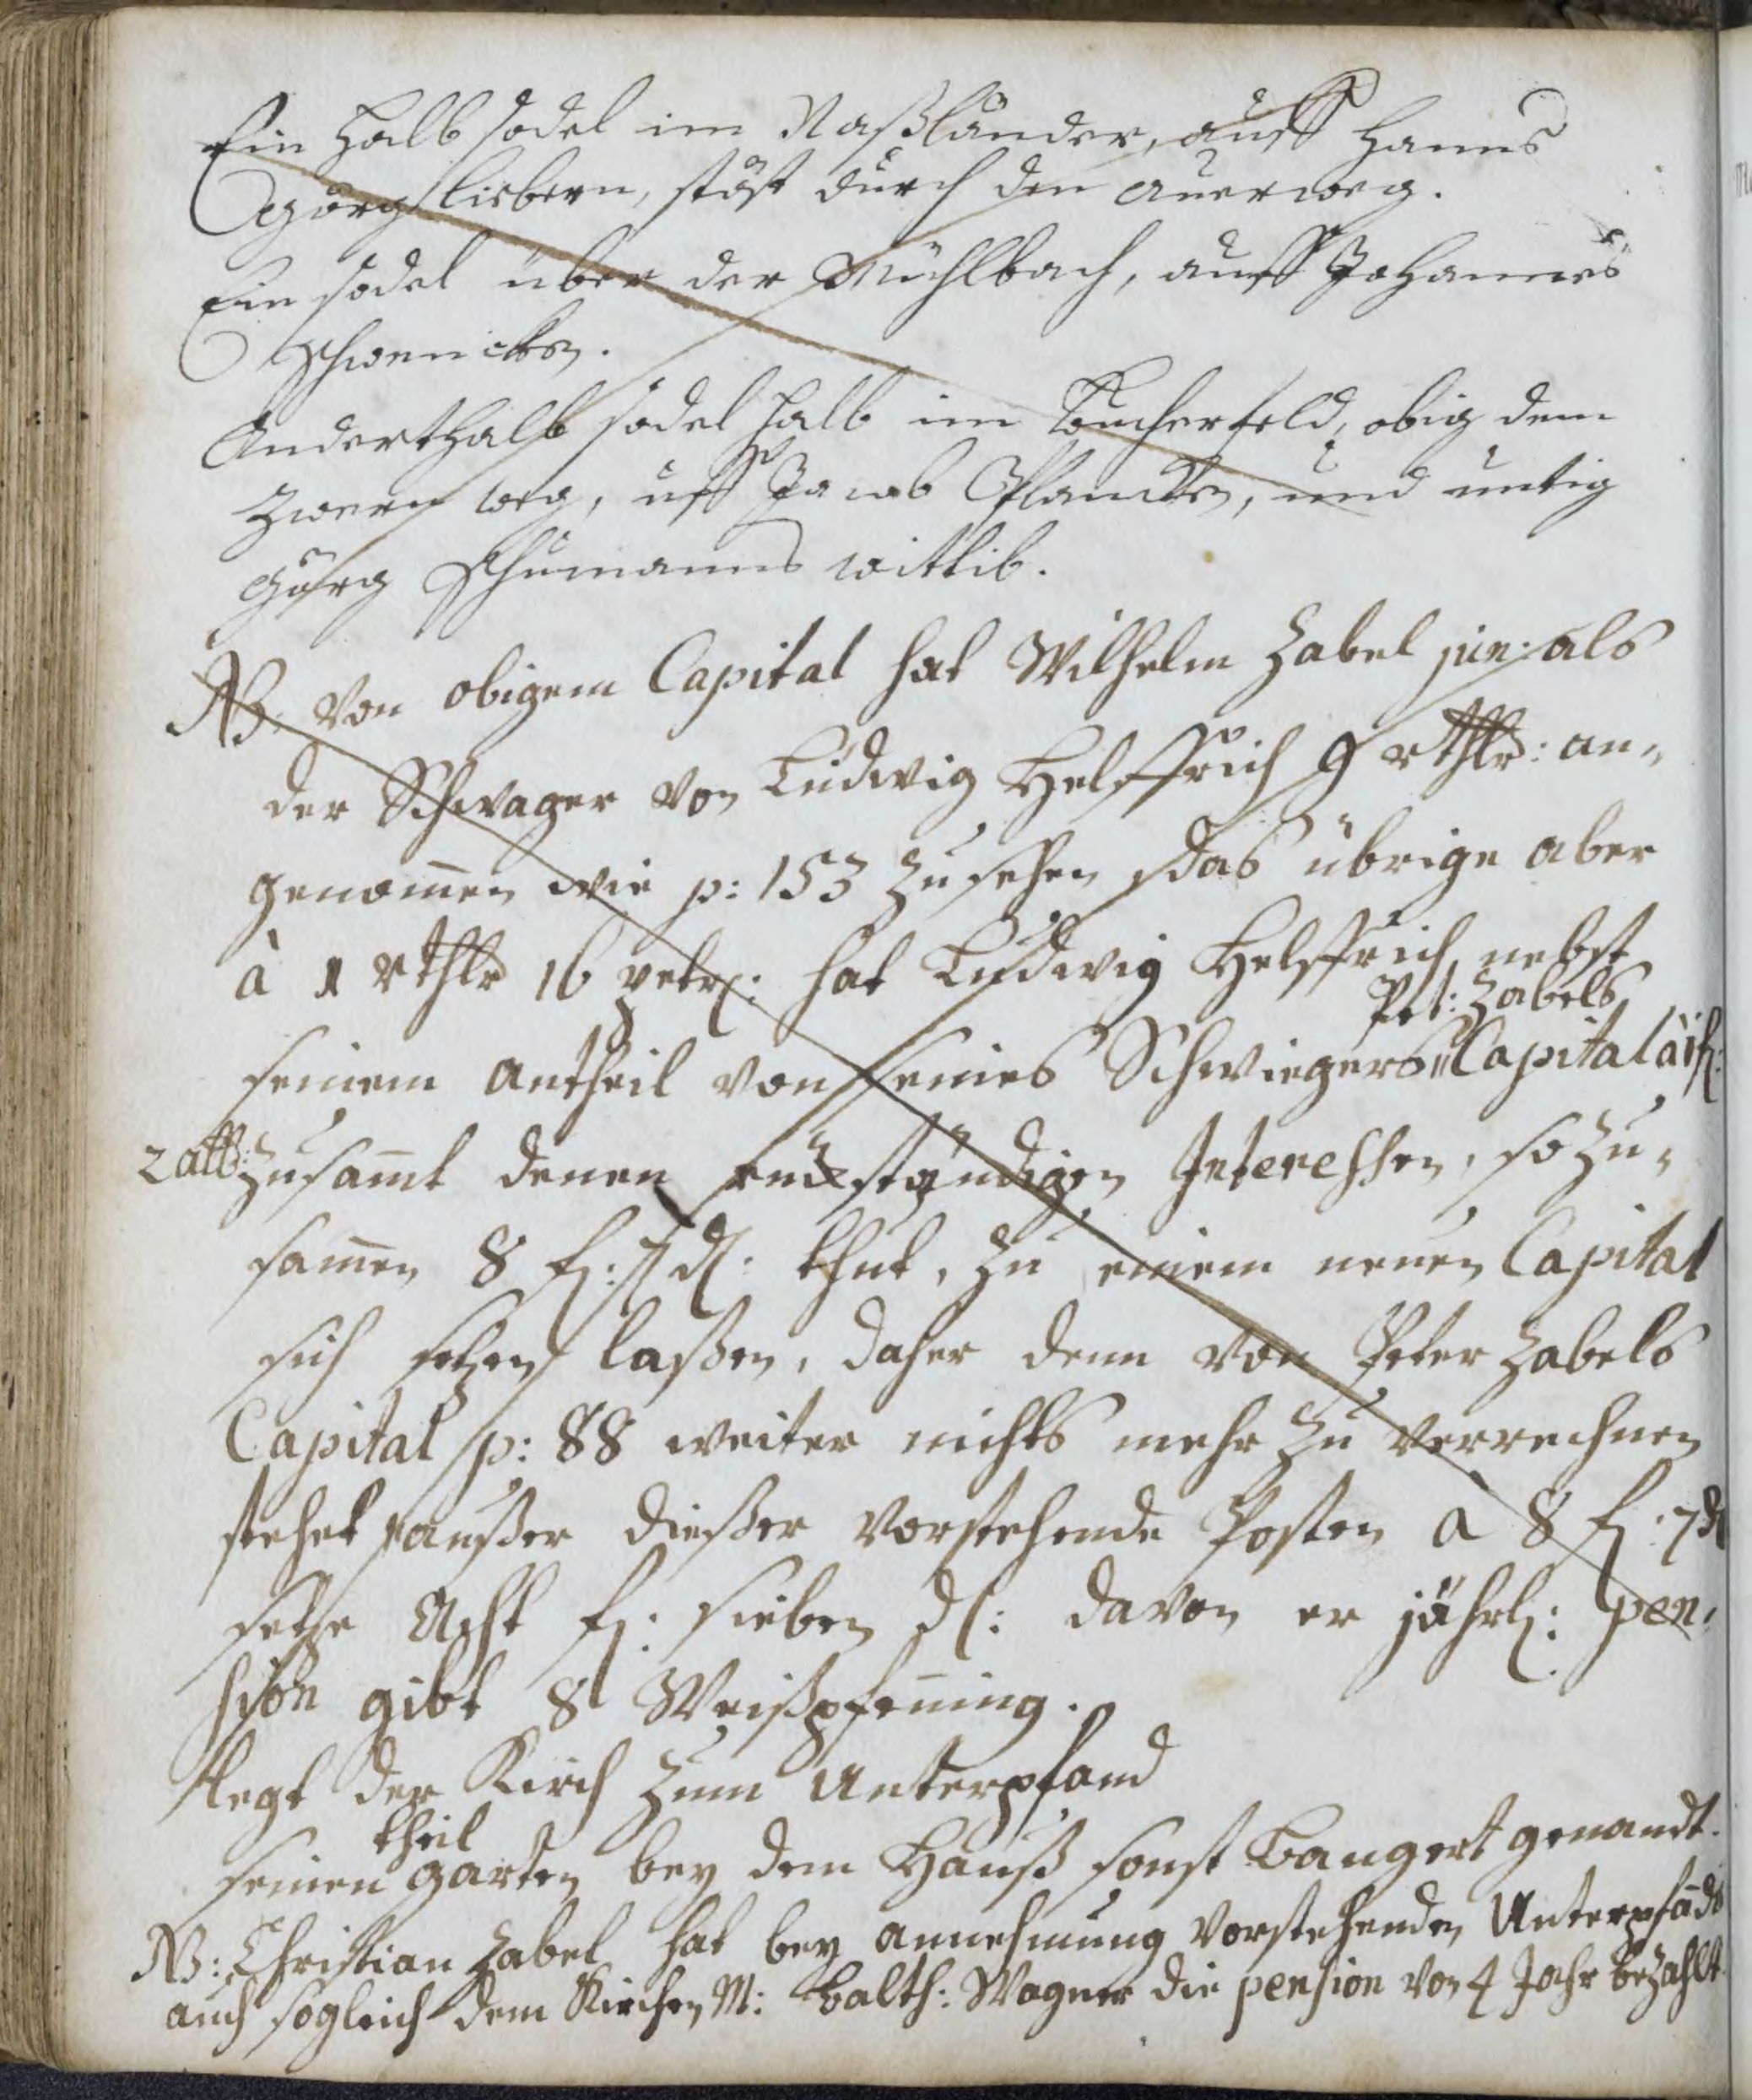 Ein halb sodel im Naßländer, auff Hanns
Görg liebern, stöst durch den auerweg.
Ein sodel über der Mühlbach, auff Johannes
Schwencken.
Anderthalb sodel halb im Bucherfeld, obig dem
Zwerg weg, uff Jacob Planden, und untig
Görg Schumanns wittib.
NB. Von obigem Capital hat Wilhelm Zabel jun: als
der Schwager von Ludwig Helffrich 9 rthlr: an-
genom̄en wie p: 153 zu sehen das übrige aber
à 1 rthlr 16 petr: hat Ludwig Helffrich nebst
Pet: Zabels
seinem antheil von seines Schwiegers Capital à 1 f:
2 alb: zusam̄t denen rückständigen Interessen, so zu-
sam̄en 8 f: 7 d: thut, zu einem neuen Capital
sich setzen laßen, daher denn von Peter Zabels
Capital p: 88 weiter nichts mehr zu verrechnen
stehet außer dießer vorstehende Posten a 8 f: 7 d
setze Acht f: sieben d: davon er jährl: pen-
sion gibt 8 Weißpfen̄ing.
legt der Kirch zum Unterpfand
theil
seinen garten bey dem Hauß sonst Bangert genandt.
NB: Christian Zabel hat bey annehmung vorstehenden Unterpfāds
auch sogleich dem Kirchen M: Balth: Wagner die pension von 4 Jahr bezahlt.